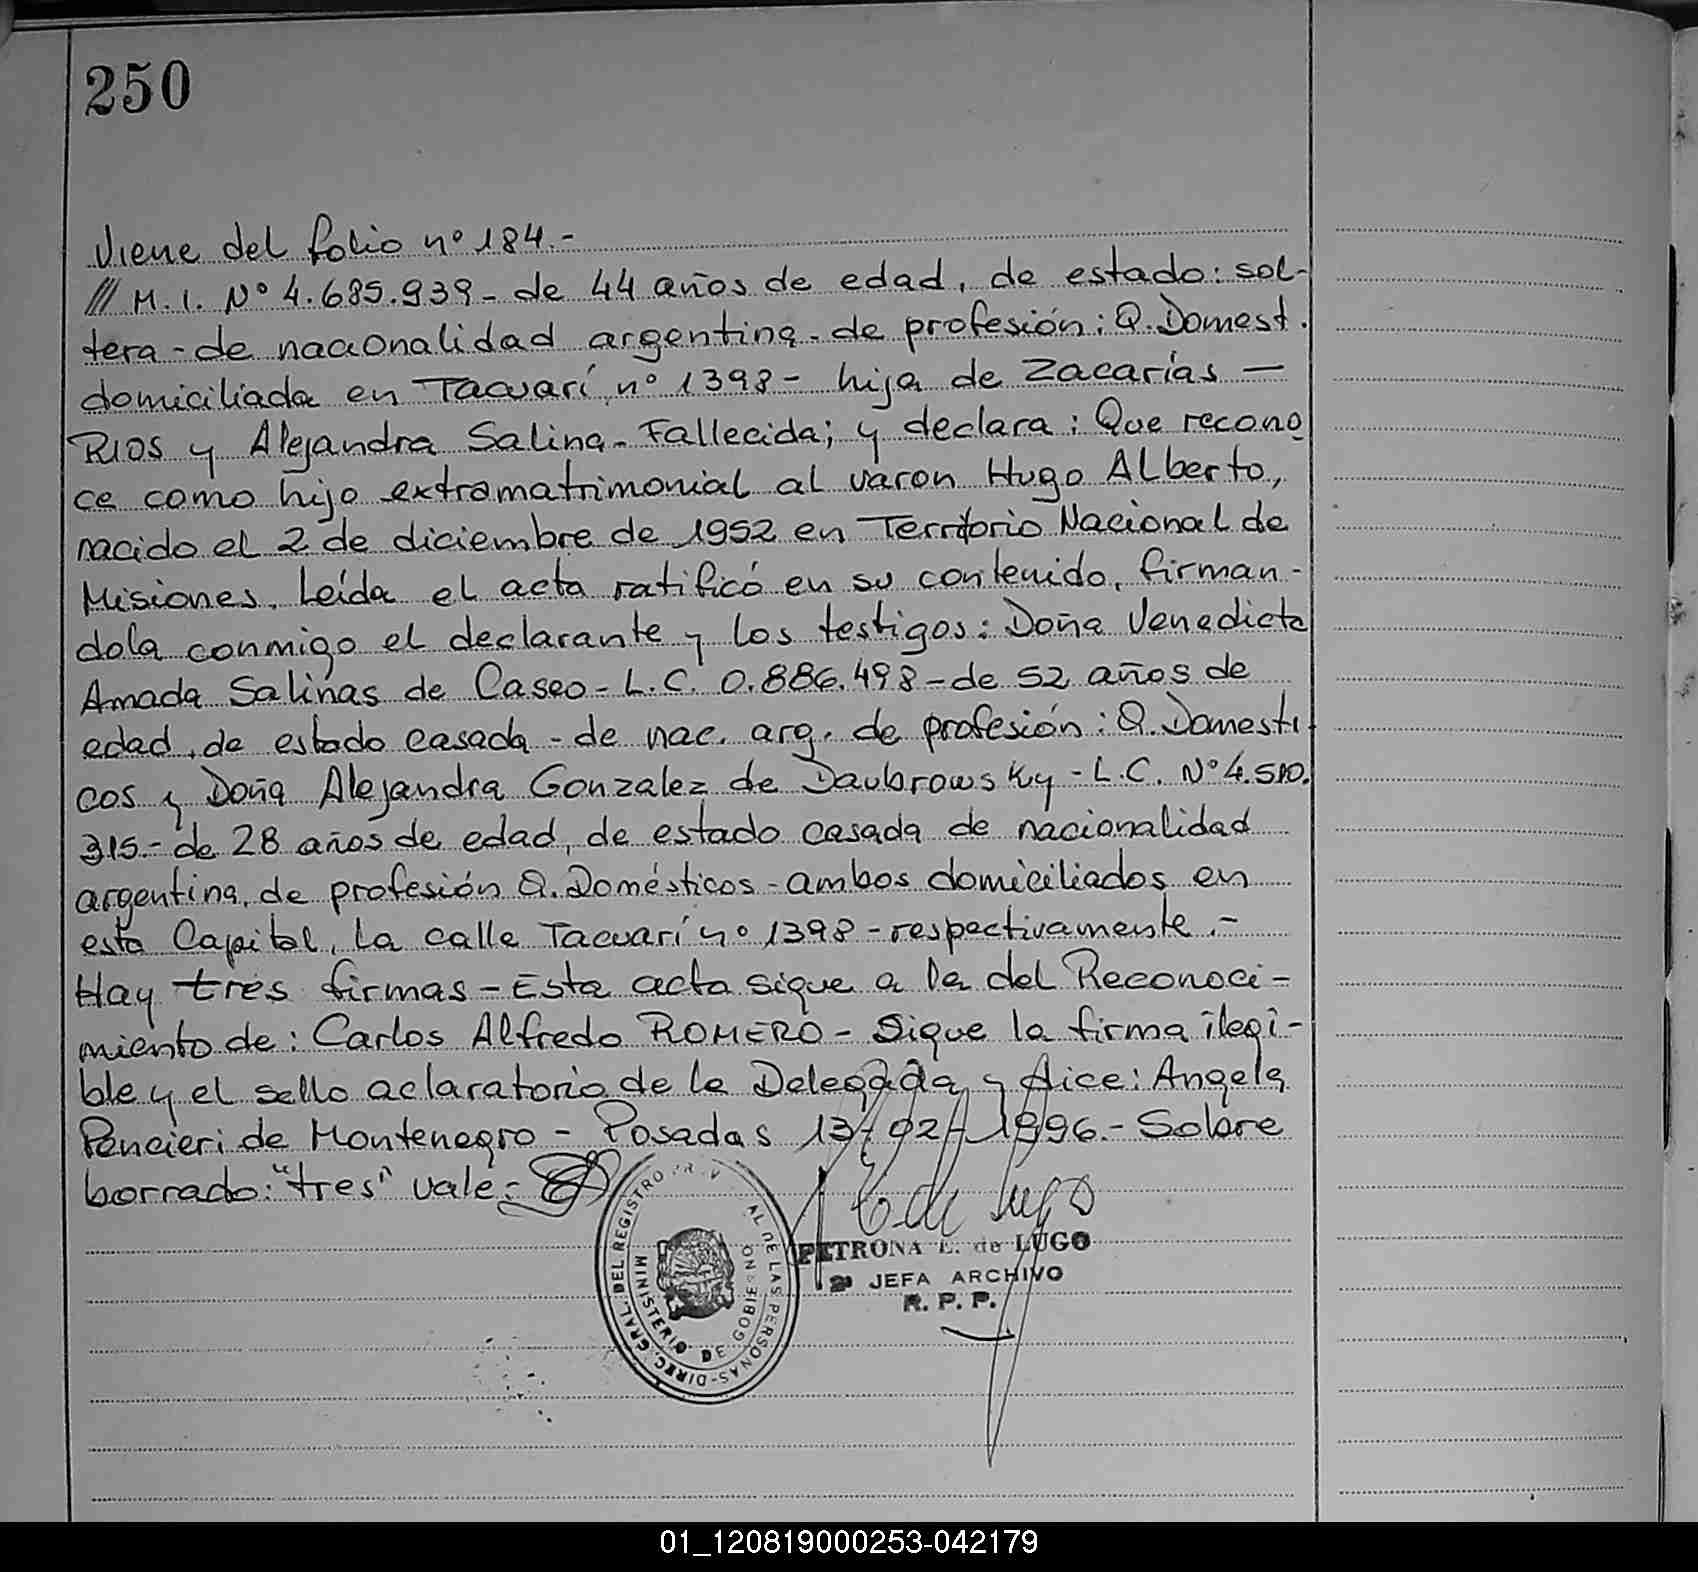 250
Viene del folio nº 184.-
/// M. I. Nº 4.685.939 - de 44 años de edad, de estado: sol-
tera - de nacionalidad argentina - de profesión: Q. Domest.
domiciliada en Tacuarí nº 1398 - hija de Zacarías —
RIOS y Alejandra Salina - Fallecida; y declara: Que recono
ce como hijo extramatrimonial al varon Hugo Alberto,
nacido el 2 de diciembre de 1952 en Territorio Nacional de
Misiones. Leída el acta ratificó en su contenido, firman-
dola conmigo el declarante y los testigos: Doña Venedicta
Amada Salinas de Caseo - L.C. 0.886.498 - de 52 años de
edad, de estado casada - de nac. arg. de profesión: Q. Domesti
cos y Doña Alejandra Gonzalez de Daubrowsky - L.C. Nº 4.510.
315.- de 28 años de edad, de estado casada de nacionalidad
argentina, de profesión Q. Domésticos - ambos domiciliados en
esta Capital, la calle Tacuarí nº 1398 - respectivamente.-
Hay tres firmas - Esta acta sigue a la del Reconoci-
miento de: Carlos Alfredo ROMERO - Sigue la firma ilegi-
ble y el sello aclaratorio de la Delegada y dice: Angela
Pencieri de Montenegro - Posadas 13-02-1996.- Sobre
borrado: "tres" vale.-
E de Lugo
PETRONA E. de LUGO
JEFA ARCHIVO
R. P. P.
DIREC. GRAL. DEL REGISTRO PROV AL DE LAS PERSONAS-
MINISTERIO DE GOBIERNO
01_120819000253-042179